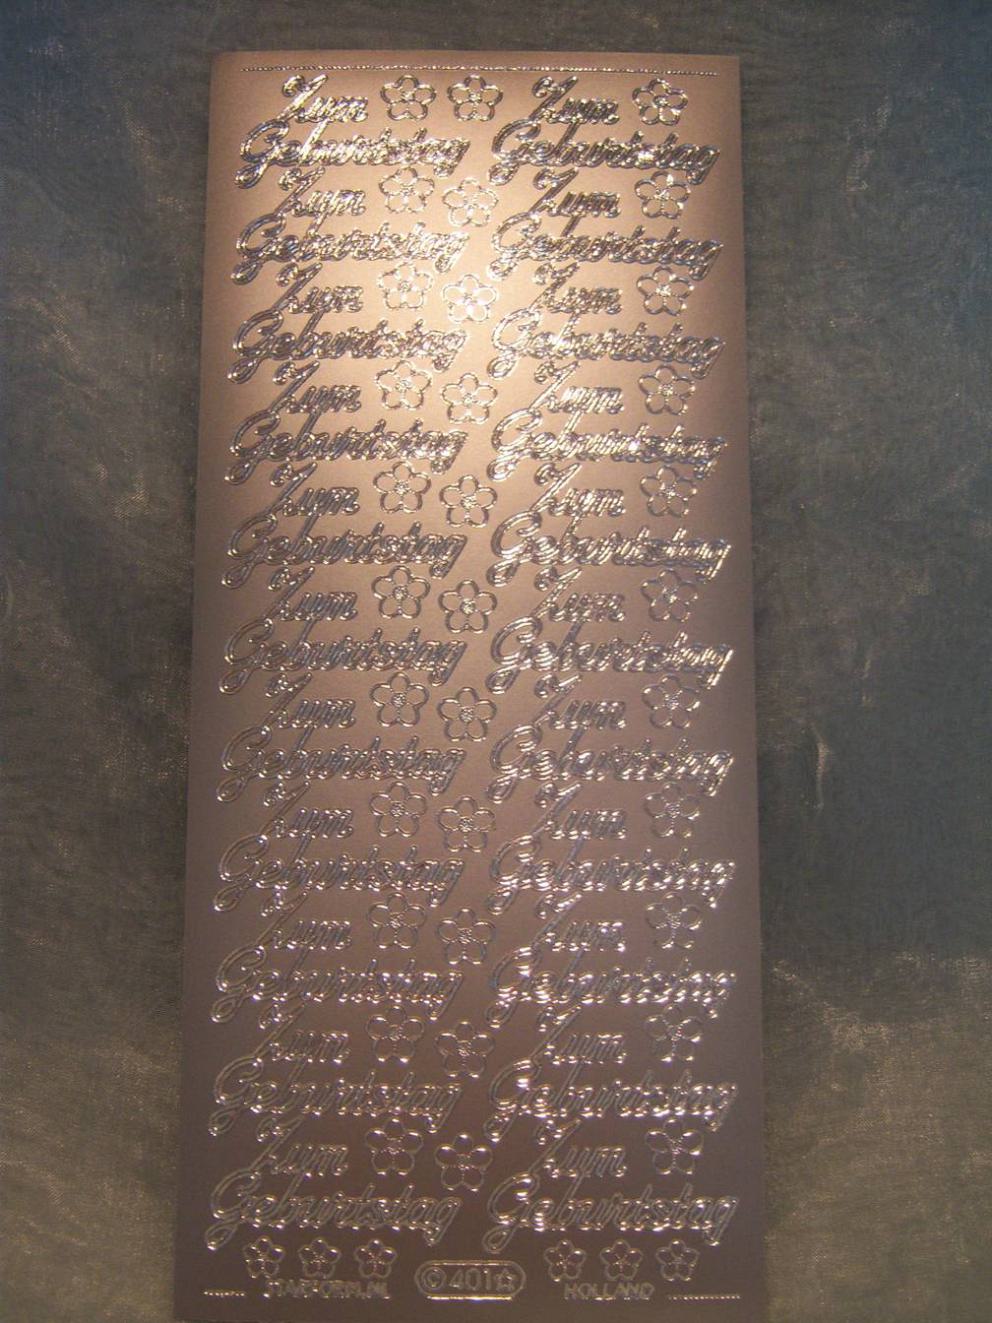 Zum Zum
Geburtstag Geburtstag
Zum Zum
Geburtstag Geburtstag
Zum Zum
Geburtstag Geburtstag
Zum Zum
Geburtstag Geburtstag
Zum Zum
Geburtstag Geburtstag
Zum Zum
Geburtstag Geburtstag
Zum Zum
Geburtstag Geburtstag
Zum Zum
Geburtstag Geburtstag
Zum Zum
Geburtstag Geburtstag
Zum Zum
Geburtstag Geburtstag
Zum Zum
Geburtstag Geburtstag
HOLLAND